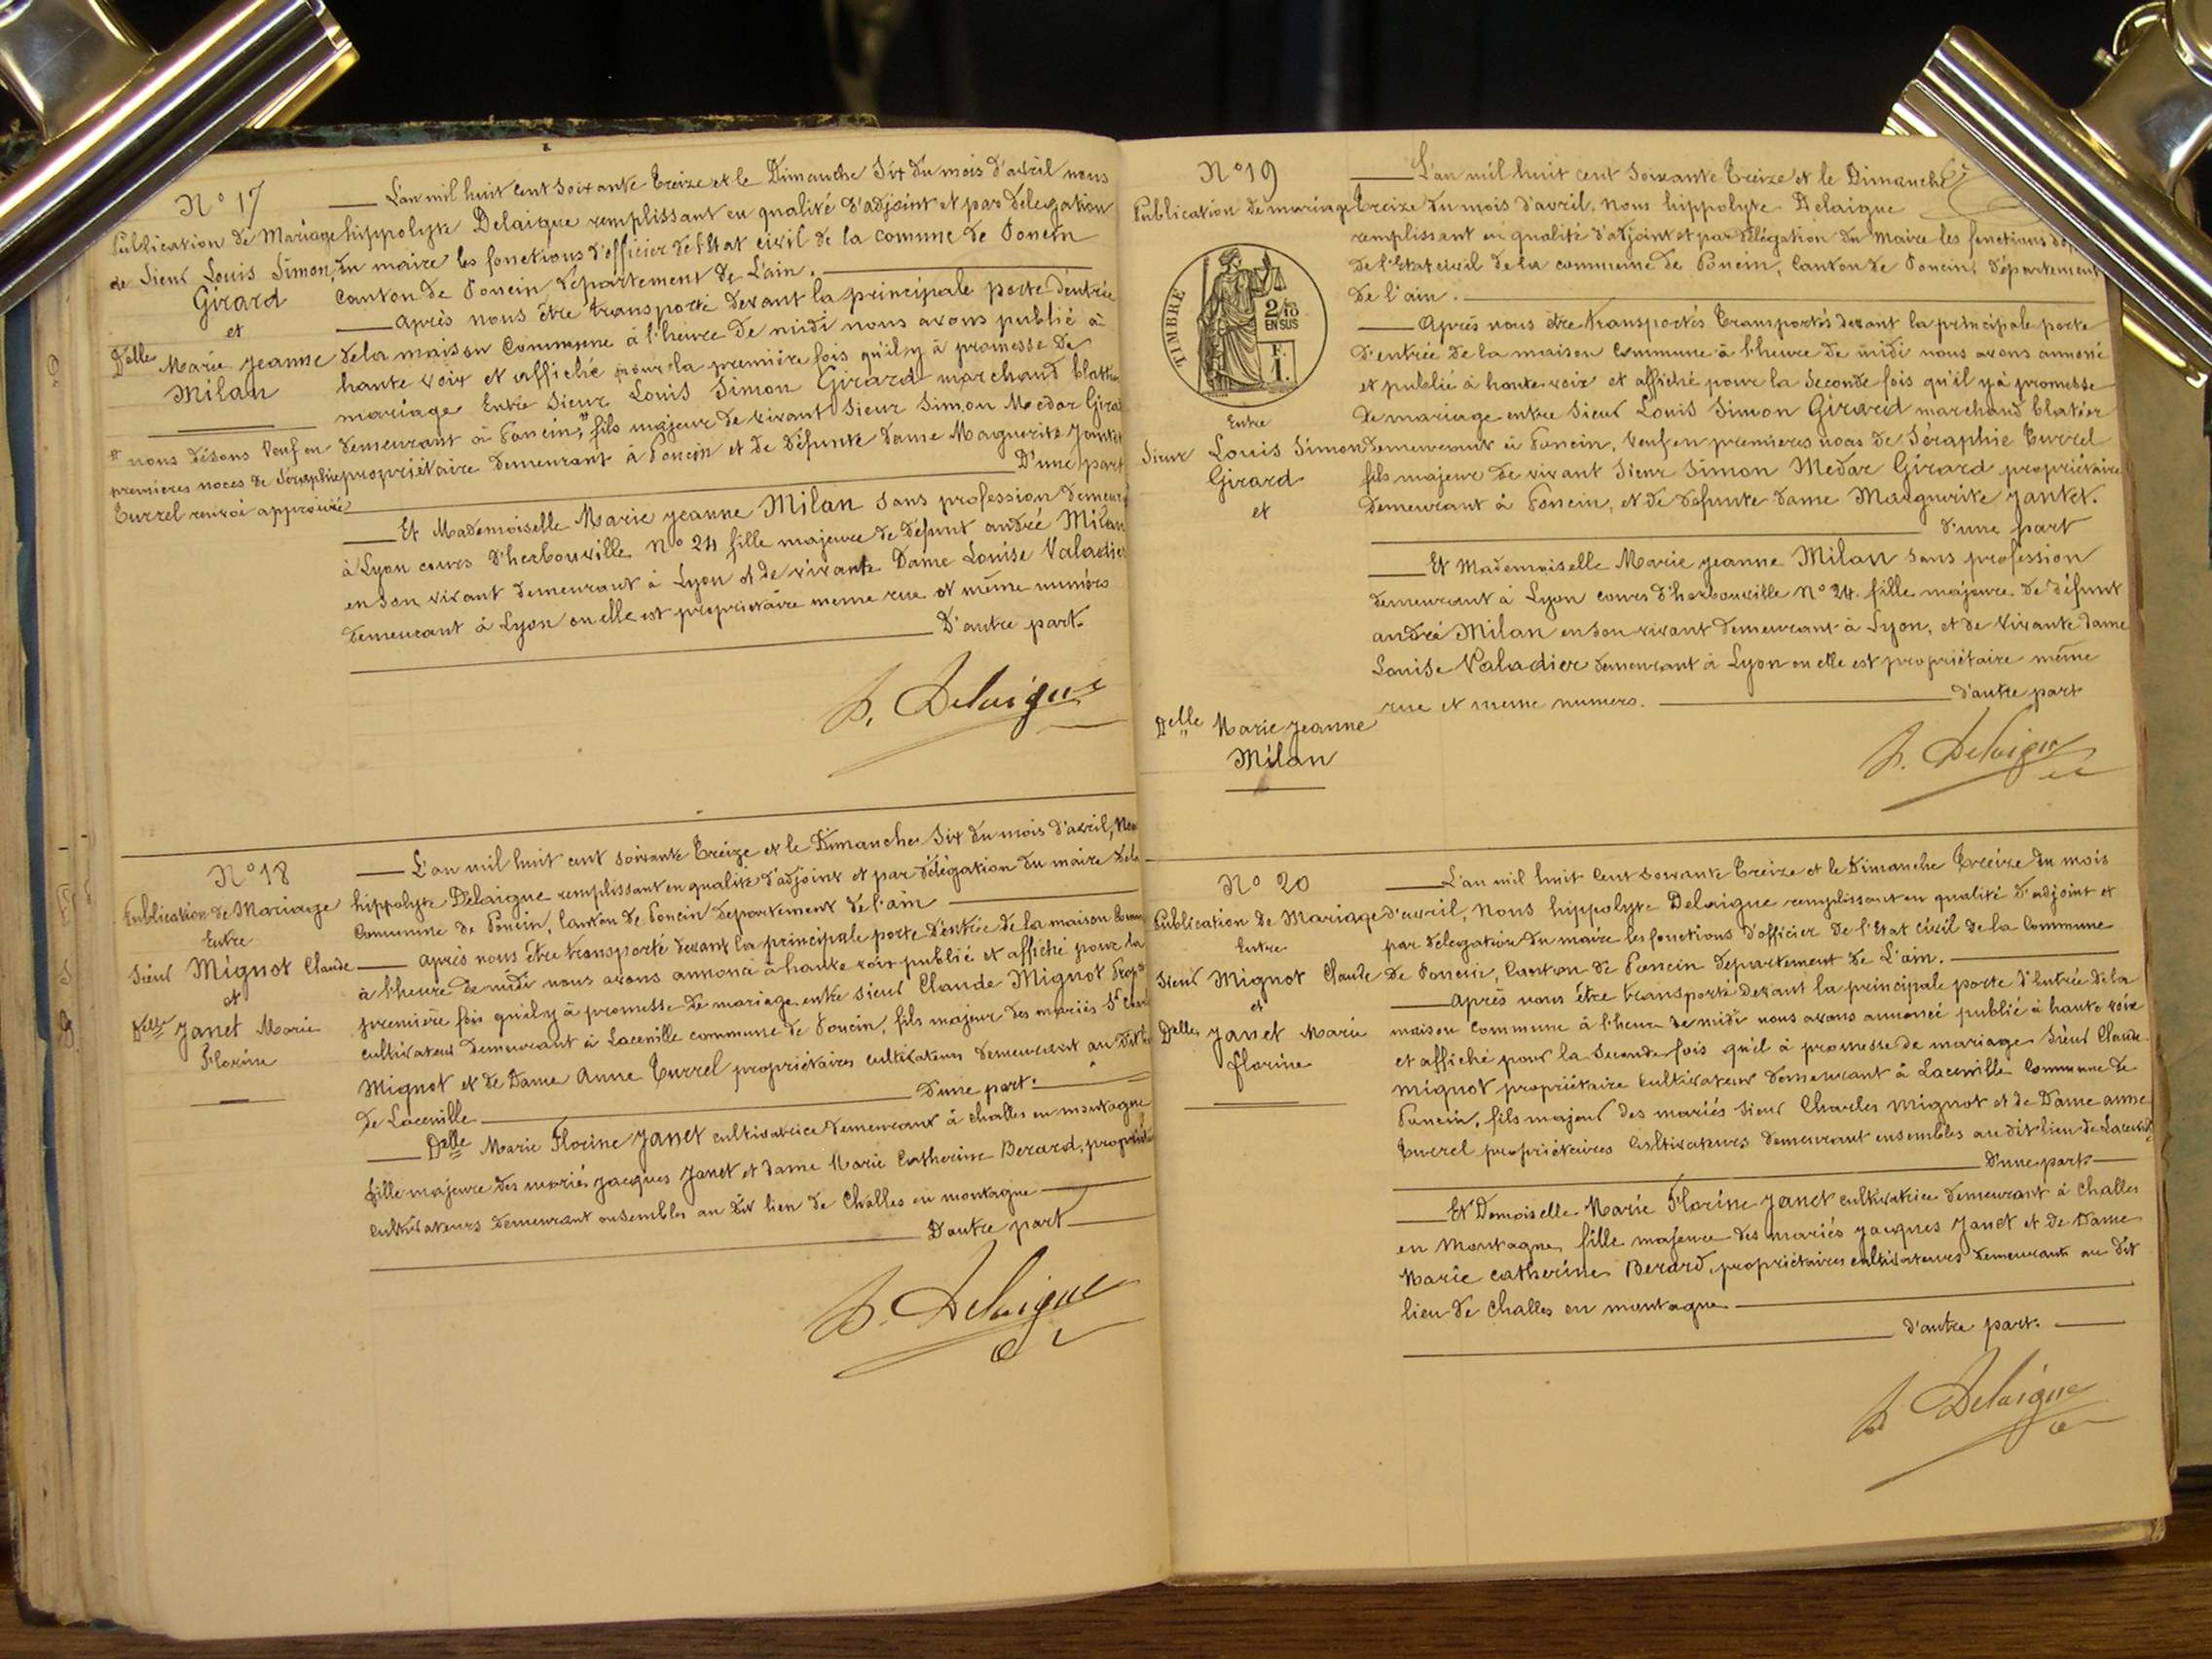 N° 17
Publication de Mariage
de Sieur Louis Simon
Girard
et
Delle Marie Jeanne
Milan
# nous disons Veuf en
premières noces de Séraphie
Turrel renvoi approuvé
L'an mil huit cent soixante treize et le Dimanche Six du mois d'avril nous
hippolyte Delaigue remplissant en qualité d'adjoint et par délegation
du maire les fonctions d'officier de l'Etat civil de la comune de Poncin
Canton de Poncin département de L'ain.
après nous être transporté devant la principale porte d'entrée
de la maison Commune à l'heure de midi nous avons publié à
haute voix et affiché pour la première fois qu'il y à promesse de
mariage Entre Sieur Louis Simon Girard marchand
demeurant à Poncin, # fils majeur de vivant Sieur Simon Medar
propriétaire demeurant à Poncin et de défunte dame Marguerite
D'une part
Et Mademoiselle Marie jeanne Milan sans profession
à Lyon cours d'herbouville N° 24 fille majeure de défunt andré Milan
en son vivant demeurant à Lyon et de vivante Dame Louise Valadier
demeurant à Lyon ou elle est propriétaire meme rue et même numéro
D'autre part.
h. Delaigue
N° 18
Publication de Mariage
Entre
Sieur Mignot Claude
et
Delle Janet Marie
Florine
L'an mil huit cent soixante Treize et le Dimanche Six du mois d'avril,
hippolyte Delaigue remplissant en qualité d'adjoint et par délégation du maire
Commune de Poncin, Canton de Poncin département de l'ain
après nous être transporté devant la principale porte d'entrée de la maison
à l'heure de midi nous avons annoncé à haute voix publié et affiché pour la
première fois qu'il y à promesse de mariage entre Sieur Claude Mignot
cultivateur demeurant à Laceville commune de Poncin, fils majeur des mariés Sr
Mignot et de Dame Anne Turrel propriétaires cultivateurs demeurant au dit
de Laceville
D'une part.
Delle Marie Florine Janet cultivatrice demeurant à challes en montagne
fille majeure des mariés jacques Janet et dame Marie Catherine Berard,
cultivateurs demeurant ensembles au dit lieu de Challes en montagne
D'autre part
h. Delaigue
N° 19
Publication de mariage
TIMBRE
2/10
EN SUS
F.
1.
Entre
Sieur Louis Simon
Girard
et
Delle Marie Jeanne
Milan
L'an mil huit cent soixante Treize et le Dimanche
Treize du mois d'avril, nous hippolyte Delaigue
remplissant en qualité d'adjoint et par délégation du maire les fonctions
de l'Etat civil de la commune de Poncin, Canton de Poncin, département
de l'ain.
Après nous être transportés transportés devant la principale porte
d'entrée de la maison commune à l'heure de midi nous avons annoncé
et publié à haute voix et affiché pour la seconde fois qu'il y à promesse
de mariage entre Sieur Louis Simon Girard marchand blatier
demeurant à Poncin, Veuf en premieres noces de Séraphie Turrel
fils majeur de vivant Sieur Simon Medar Girard propriétaire
demeurant à Poncin, et de défunte dame Marguerite Jantet.
d'une part
Et Mademoiselle Marie jeanne Milan sans profession
demeurant à Lyon cours d'herbouville N° 24. fille majeure de défunt
andré Milan en son vivant demeurant à Lyon, et de vivante dame
Louise Valadier demeurant à Lyon ou elle est propriétaire même
rue et meme numero.
d'autre part
h. Delaigue
N° 20
Publication de Mariage
Entre
Sieur Mignot Claude
et
Delle Janet Marie
florine
L'an mil huit Cent soixante Treize et le Dimanche Treize du mois
d'avril, Nous hippolyte Delaigue remplissant en qualité d'adjoint et
par délegation du maire les fonctions d'officier de l'Etat Civil de la Commune
de Poncin, Canton de Poncin département de L'ain.
Après nous être transporté devant la principale porte d'Entrée de la
maison Commune à l'heure de midi nous avons annoncé publié à haute voix
et affiché pour la Seconde fois qu'il à promesse de mariage Sieur Claude
Mignot propriétaire Cultivateur demeurant à Laceville Commune de
Poncin, fils majeur des mariés Sieur Charles Mignot et de Dame anne
Turrel propriétaires Cultivateurs demeurant ensembles au dit lieu de
D'une part
Et Demoiselle Marie Florine Janet cultivatrice demeurant à Challes
en Montagne, fille majeure des mariés jacques Janet et de Dame
Marie catherine Berard, propriétaires cultivateurs demeurants au dit
lieu de Challes en montagne
d'autre part.
h Delaigue